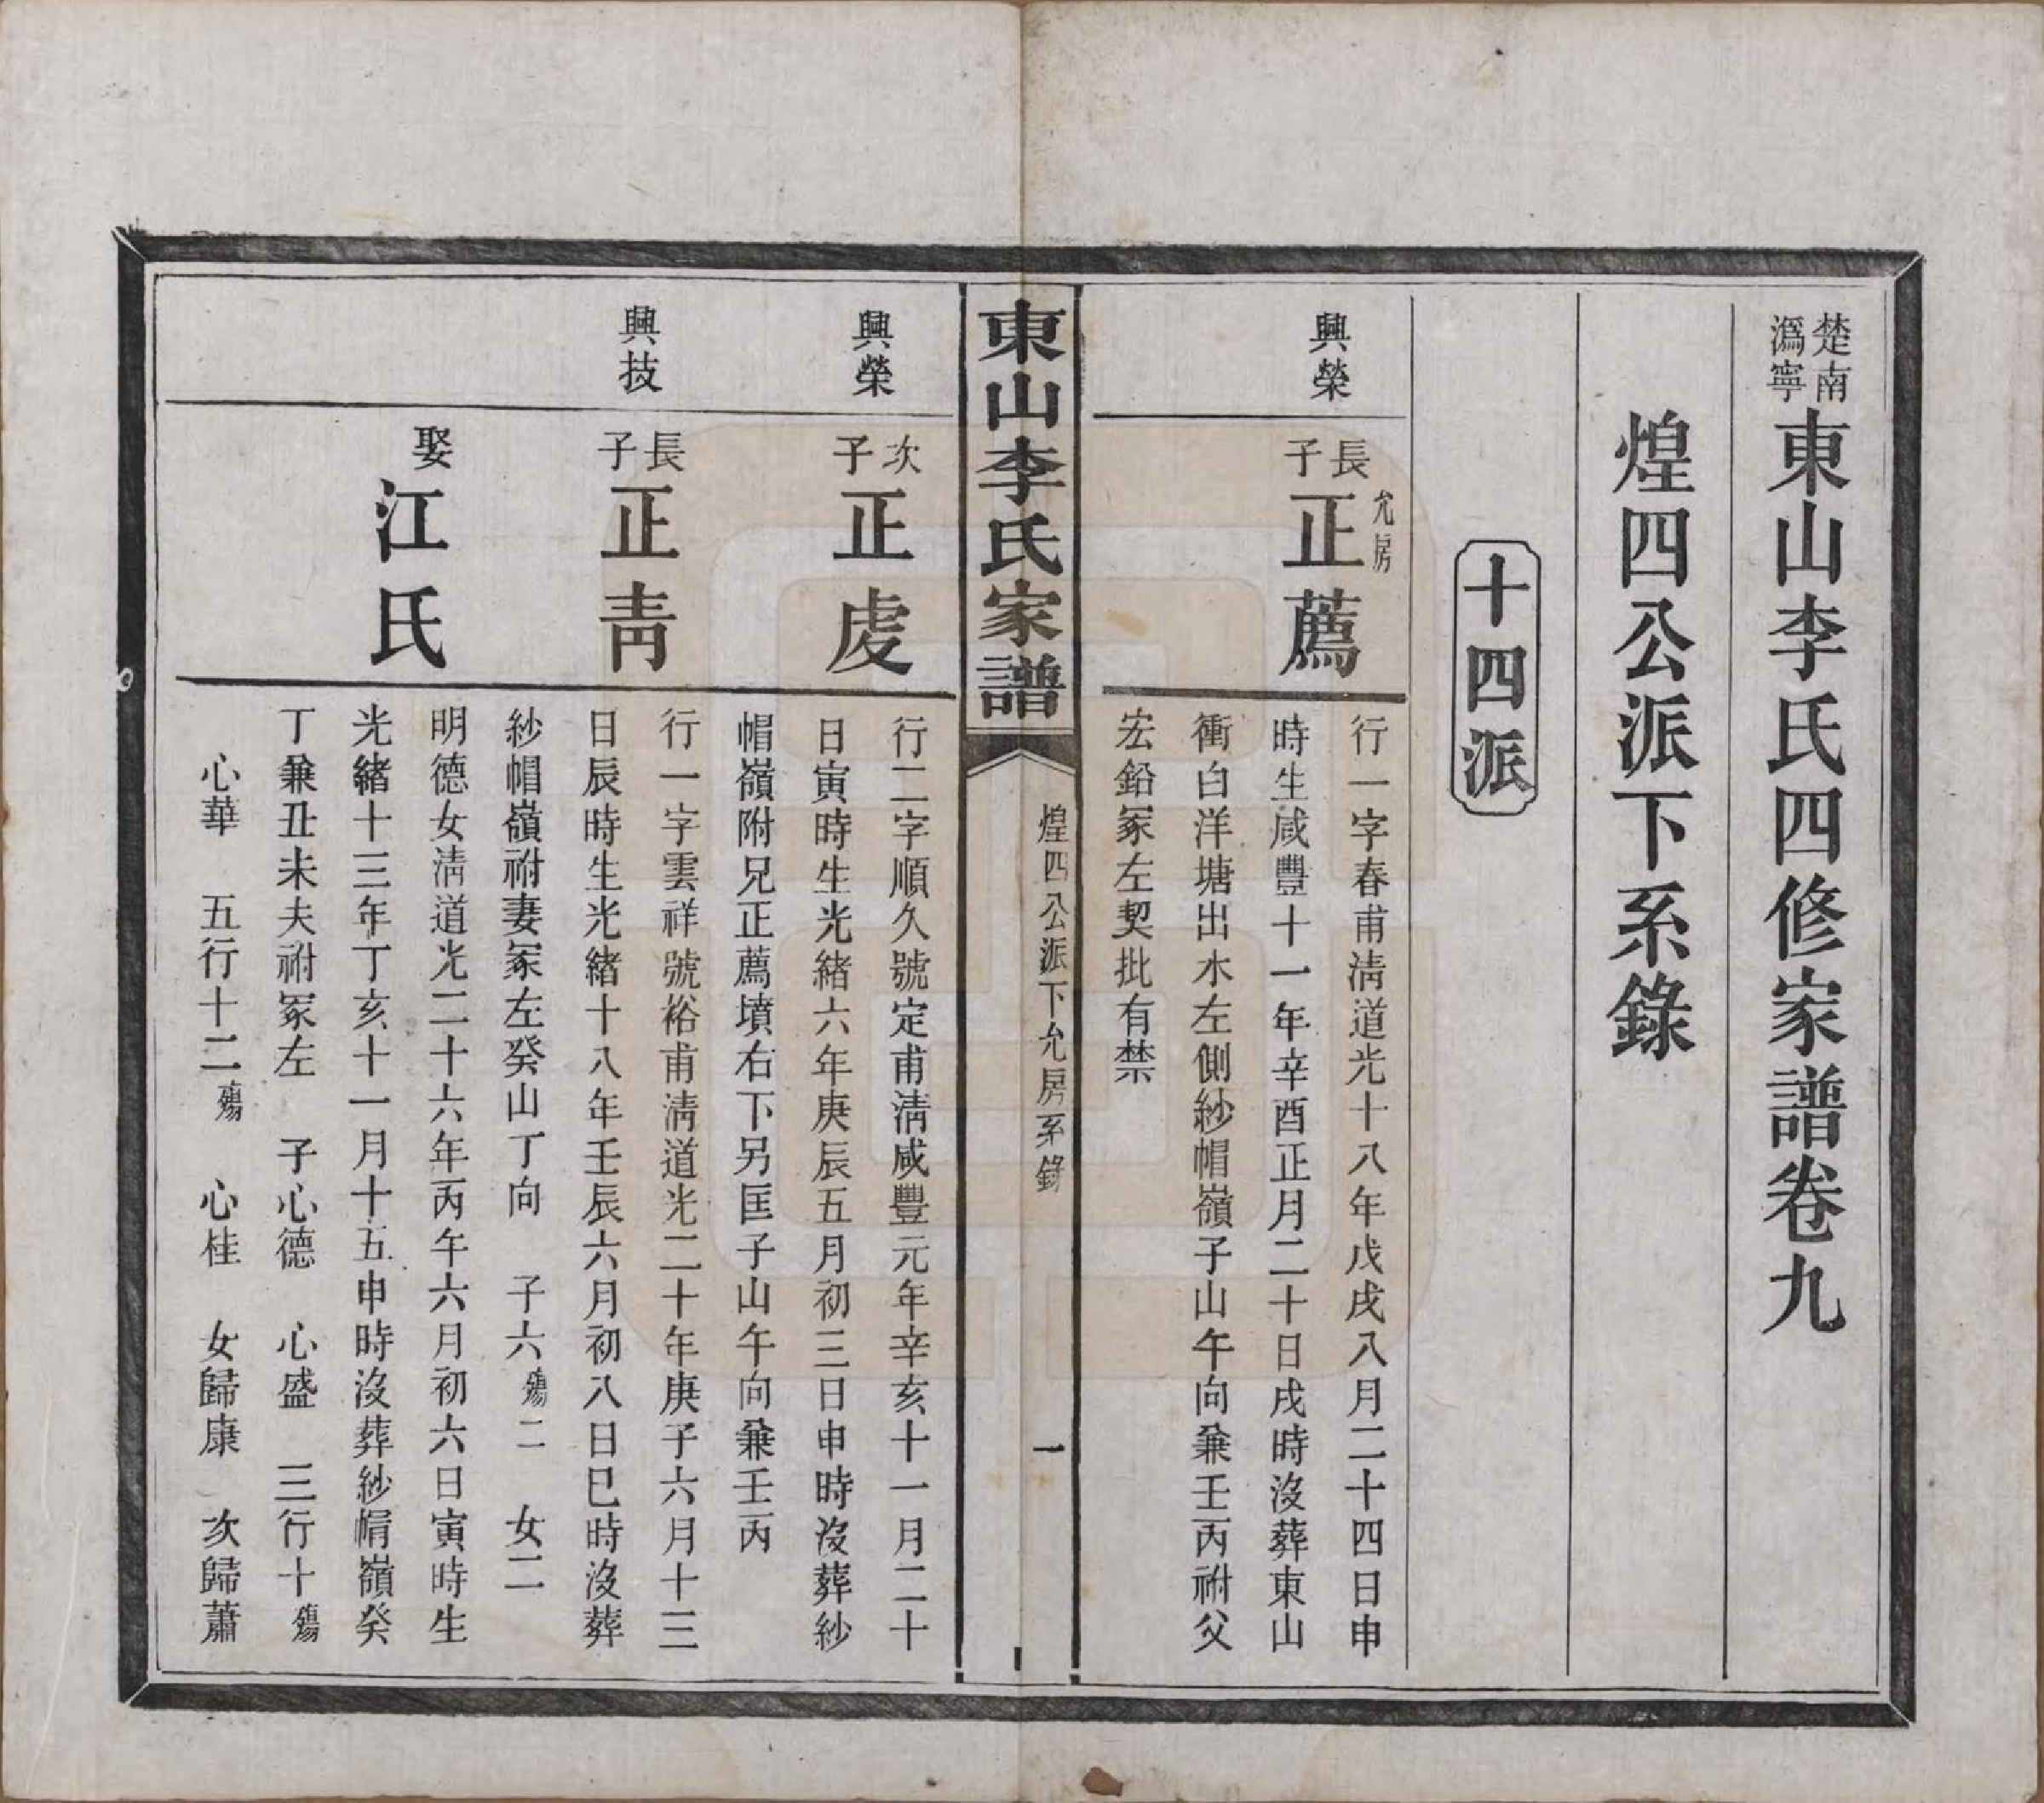 楚南
溈寧
東山李氏四修家譜卷九
煌四公派下系錄
十四派
興榮
長子
允房
正薦
行一字春甫淸道光十八年戊戌八月二十四日申
時生咸豐十一年辛酉正月二十日戌時沒葬東山
衝白洋塘出水左側紗帽嶺子山午向兼壬丙祔父
宏鉛冢左契批有禁
東山李氏家譜
煌四公派下允房系錄
一
興榮
次子
正虔
行二字順久號定甫淸咸豐元年辛亥十一月二十
日寅時生光緒六年庚辰五月初三日申時沒葬紗
帽嶺附兄正薦墳右下另匡子山午向兼壬丙
興技
長子
正靑
行一字雲祥號裕甫淸道光二十年庚子六月十三
日辰時生光緒十八年壬辰六月初八日巳時沒葬
紗帽嶺祔妻冢左癸山丁向 子六殤二 女二
娶
江氏
明德女淸道光二十六年丙午六月初六日寅時生
光緒十三年丁亥十一月十五申時沒葬紗帽嶺癸
丁兼丑未夫祔冢左 子心德 心盛 三行十殤
心華 五行十二殤 心桂 女歸康 次歸蕭